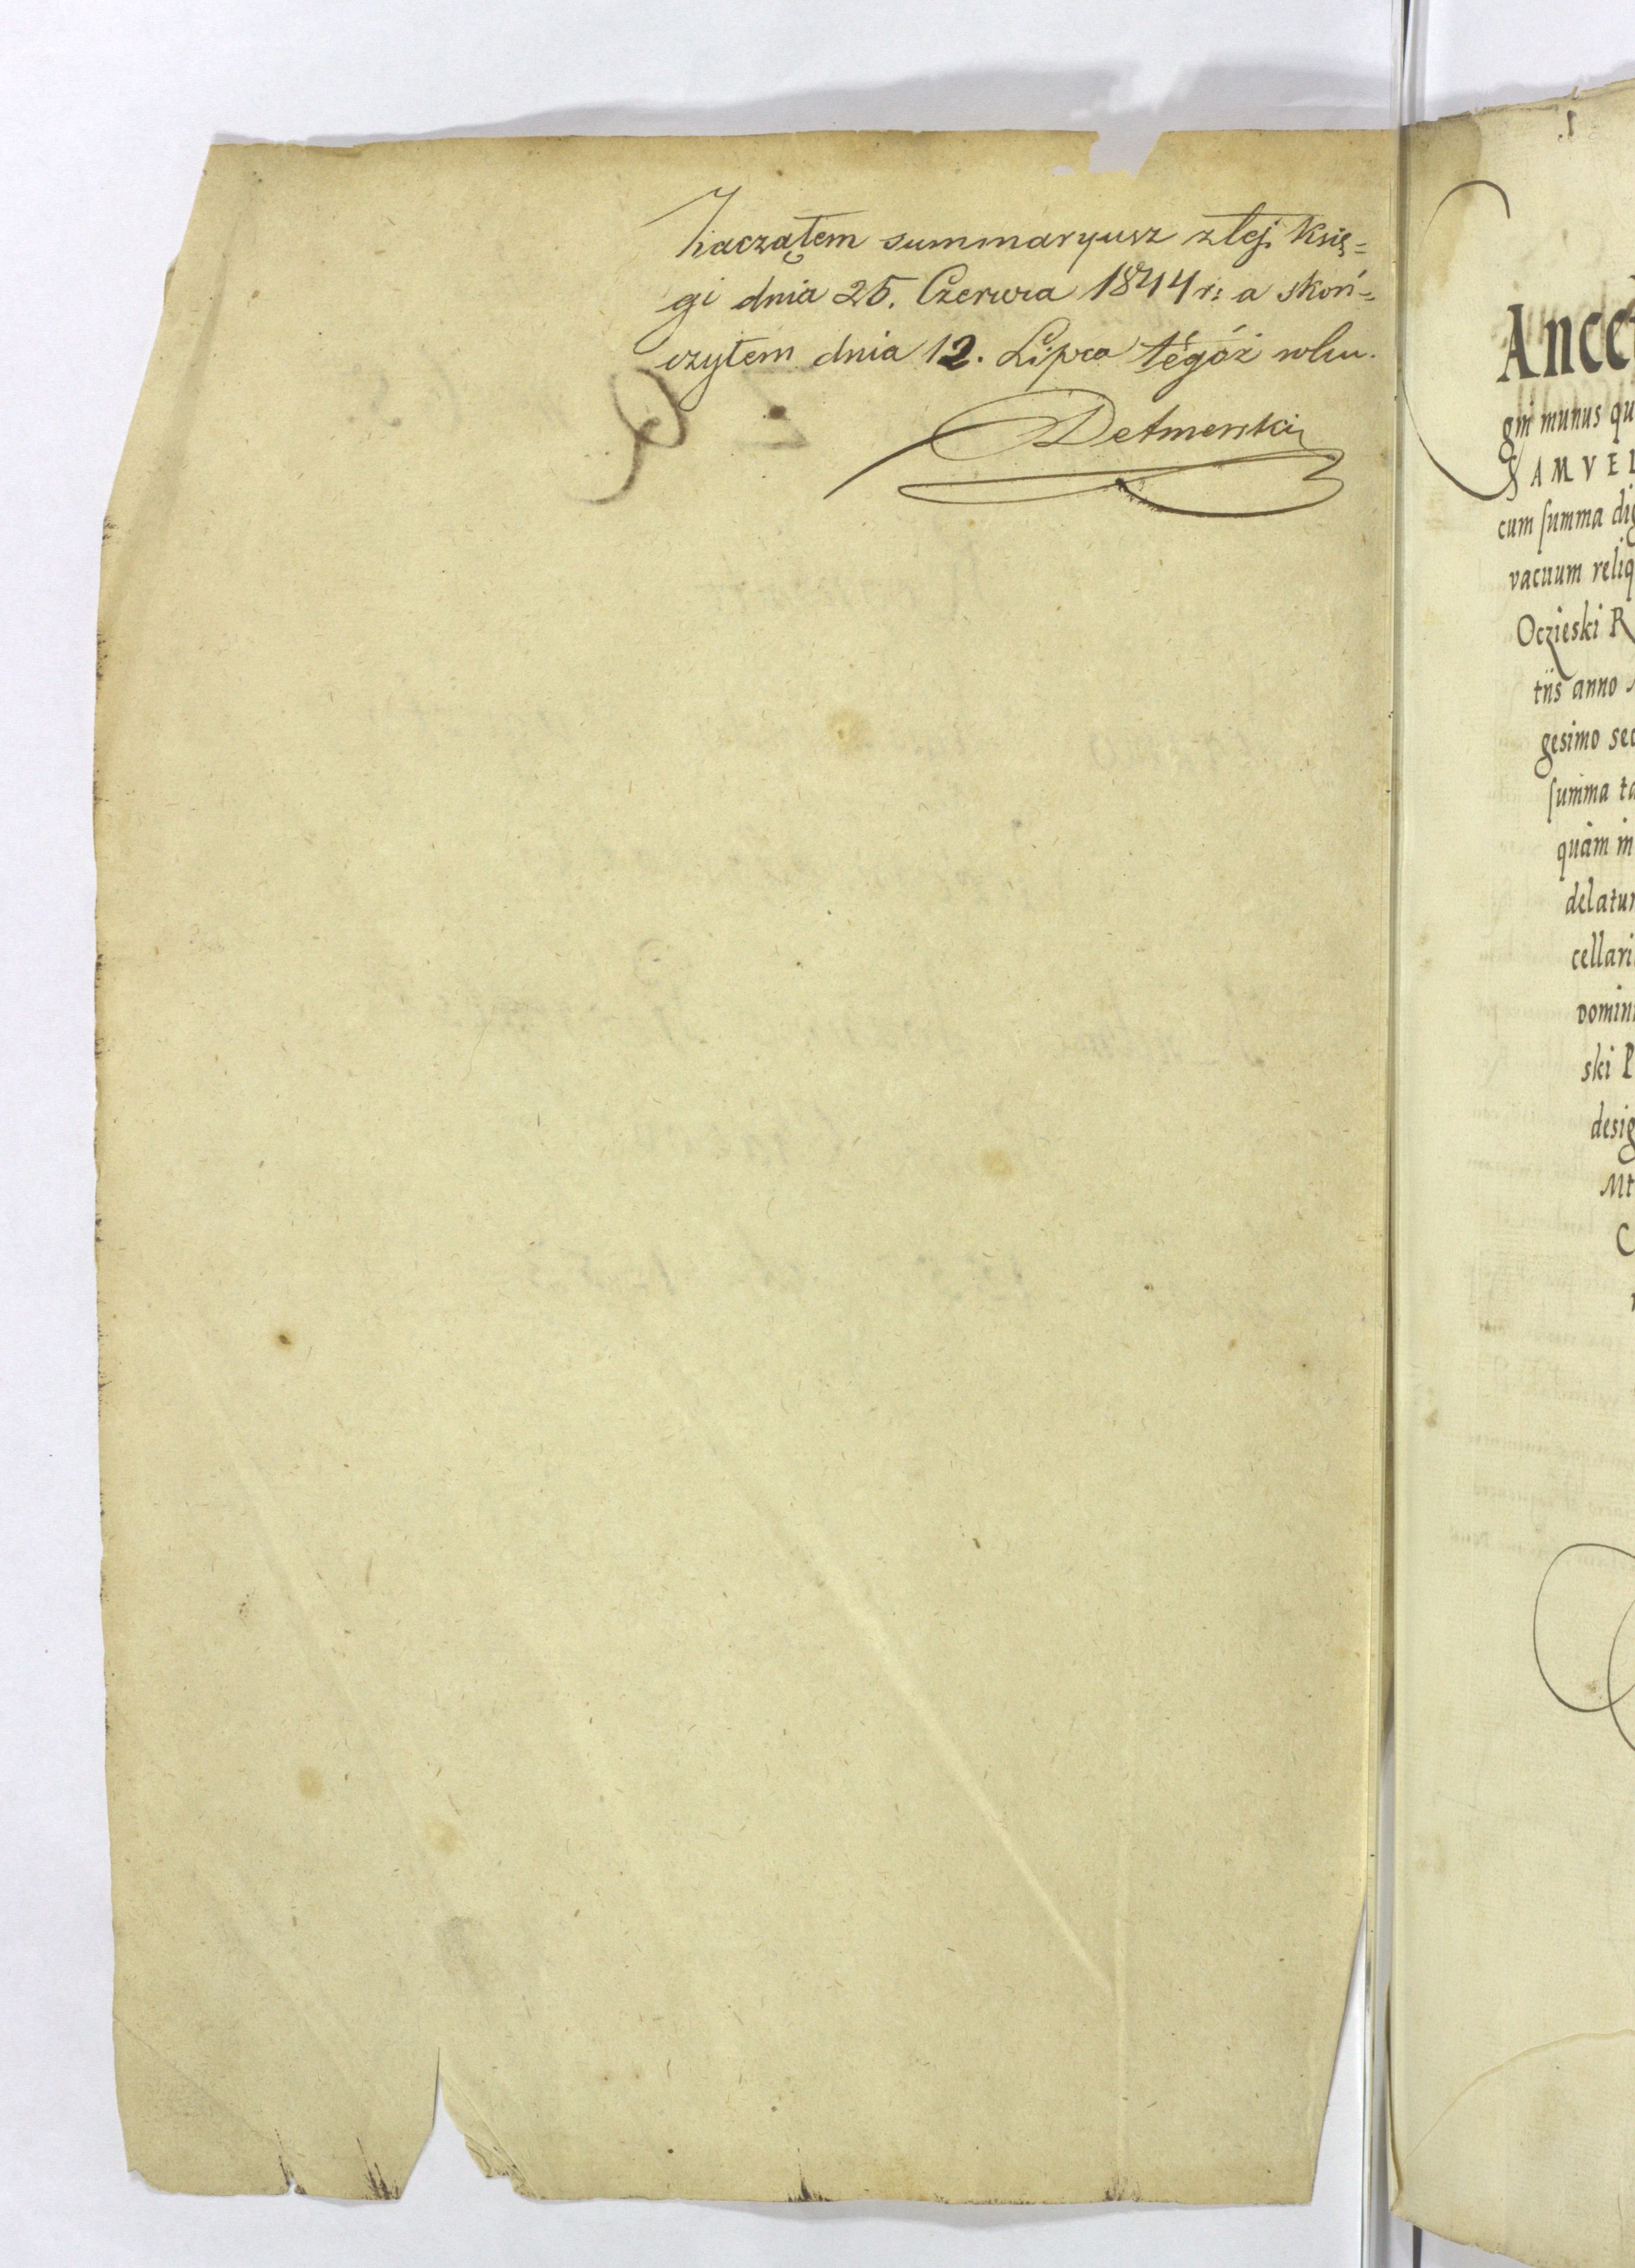 Zaczątem summaryusz z tej Księ=
gi dnia 25. Czerwca 1844 r: a skoń=
czyłem dnia 12. Lipca tégóż roku.
Detmerski
gni munus qu
SAMVEL
cum summa dig
vacuum reliq
Oczieski R
tiis anno
gesimo sec
summa ta
quàm in
delatur
cellari
domini
ski P
desig
Mt
C